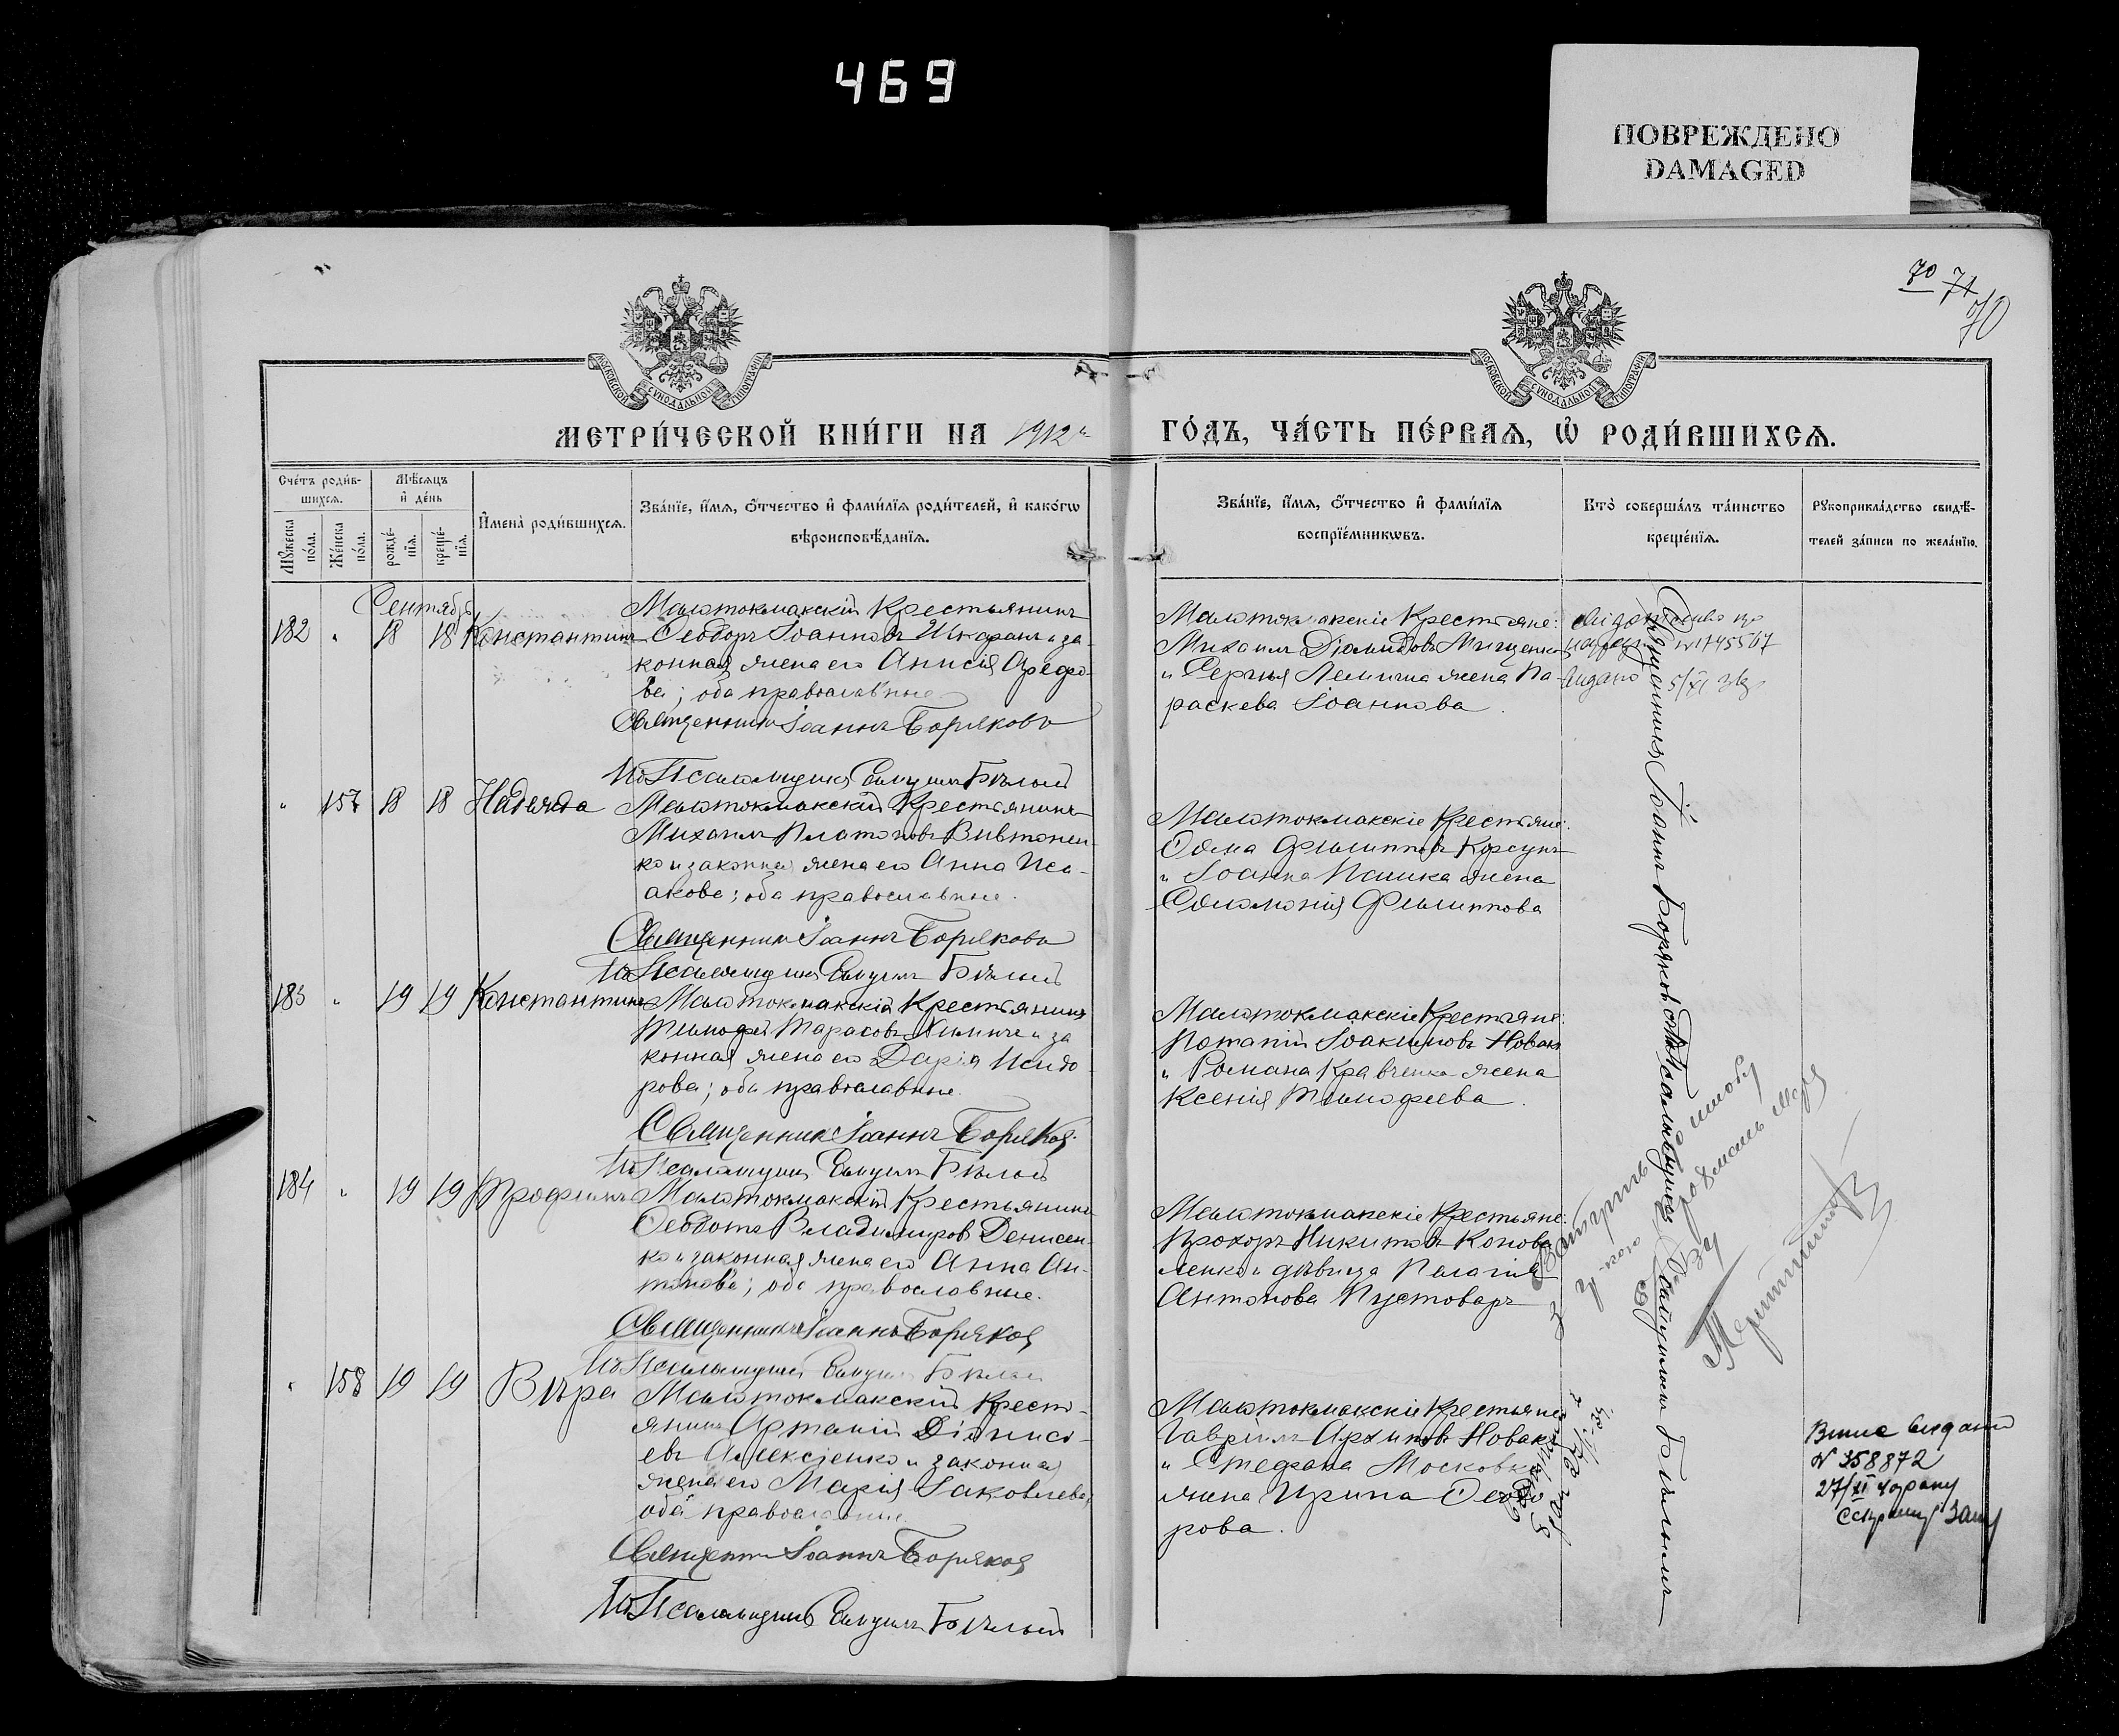 469
ПОВРЕЖДЕНО
DAMAGED
70 71
70
МОСКОВСКОЙ СѴНОДАЛЬНОЙ ТИПОГРАФІИ
МОСКОВСКОЙ СѴНОДАЛЬНОЙ ТИПОГРАФІИ
МЕТРИ́ЧЕСКОЙ КНИ́ГИ НА 1912й
ГО́ДЪ, ЧА́СТЬ ПЕ́РВАѦ, Ѡ҆ РОДИ́ВШИХСѦ.
Сче́тъ роди́вшихсѧ.
Мꙋ́жеска по́ла.
Же́нска по́ла.
Мѣ́сѧцъ и҆ де́нь
рожде́нїѧ.
креще́нїѧ.
И҆мена̀ роди́вшихсѧ.
Зва́нїе, и҆́мѧ, ѻ҆́тчество и҆ фами́лїѧ роди́телей, и҆ како́гѡ
вѣроисповѣ́данїѧ.
Зва́нїе, и҆́мѧ, ѻ҆́тчество и҆ фами́лїѧ
воспрїе́мникѡвъ.
Кто̀ соверша́лъ та́инство
креще́нїѧ.
Рꙋкоприкла́дство свидѣ́-
телей за́писи по жела́нїю.
Сентябрь
182 " 18 18 Константинъ
Малотокмакскій Крестьянинъ
Ѳеодоръ Іоанновъ и за-
конная жена его Анисія Арефо-
ва; оба православные
Священникъ Іоаннъ Боряковъ
Псаломщикъ Бѣлый
Малотокмакскіе Крестьяне:
Михаилъ Діомидовъ Мищенко
и Сергѣя жена Па-
раскева Іоаннова.
5/XI
" 157 18 18 Надежда
Малотокмакскій Крестьянинъ
Михаилъ Платоновъ Вивтонен-
ко и законная жена его Анна Иса-
акова; оба православные.
Священникъ Іоаннъ Боряковъ
Псаломщикъ Бѣлый
Малотокмакскіе Крестьяне:
Ѳома Филипповъ Корсунъ
и Іоанна Пашка жена
Соломонія Филиппова
183 " 19 19 Константинъ
Малотокмакскій Крестьянинъ
Тимофей Тарасовъ и за
конная жена его Дарія Исидо-
рова; оба православные.
Священникъ Іоаннъ Боряковъ
Псаломщикъ Бѣлый
Малотокмакскіе Крестьяне:
Потапій Іоакимовъ Новакъ
и Романа Кравченка жена
Ксенія Тимофеева.
184 " 19 19 Трофимъ
Малотокмакскій Крестьянинъ
Ѳеодотъ Владимировъ Денисен-
ко и законная жена его Анна Ан-
тонова; оба православные.
Священникъ Іоаннъ Боряковъ
Псаломщикъ Бѣлый
Малотокмакскіе Крестьяне:
Прохоръ Никитовъ Конова-
ленко и дѣвица Пелагія
Антонова Пустоваръ
" 158 19 19 Вѣра
Малотокмакскій Кресть-
янинъ Артемій Діонисі-
евъ Алексіенко и законная
жена его Марія Іаковлева;
оба православные.
Священникъ Іоаннъ Боряковъ
Псаломщикъ Бѣлый
Малотокмакскіе Крестьяне
Гавріилъ Архиповъ Новакъ
и Стефана Московка
жена Ирина Ѳеодо
рова.
Священникъ Іоаннъ Боряковъ съ Псаломщикомъ Бѣлымъ
N 358872
27/XI